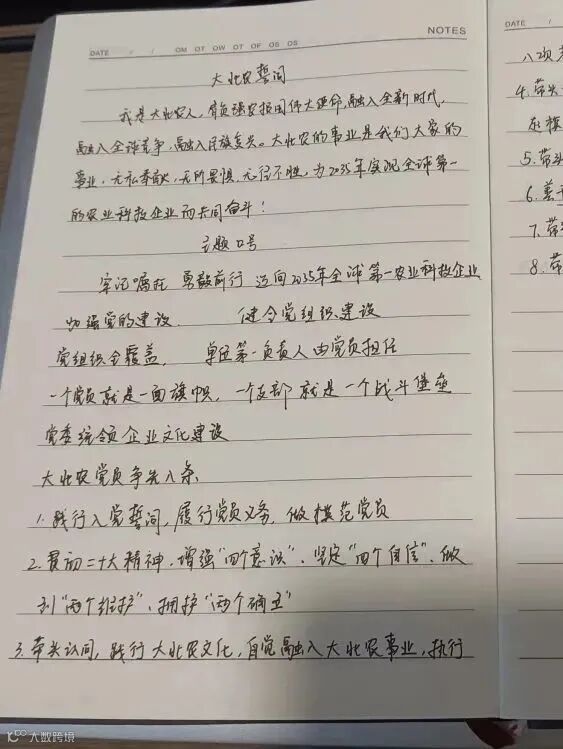 NOTES
DATE / / OM OT OW OT OF OS OS
大北农誓词
我是大北农人，肩负强农报国伟大使命，融入全新时代，
融入全球竞争，融入民族复兴。大北农的事业是我们大家的
事业，无私奉献，无所畏惧，无往不胜，为2035年实现全球第一
的农业科技企业而共同奋斗！
主题口号
牢记嘱托 勇毅前行 迈向2035年全球第一农业科技企业
加强党的建设 健全党组织建设
党组织全覆盖， 单位第一负责人由党员担任
一个党员就是一面旗帜，一个支部就是一个战斗堡垒
党委统领企业文化建设
大北农党员争先八条
1. 践行入党誓词，履行党员义务，做模范党员
2. 贯彻二十大精神，增强"四个意识"、坚定"四个自信"、做
到"两个维护"、拥护"两个确立"
3. 带头认同，践行大北农文化，自觉融入大北农事业，执行
DATE /
八项
4. 带头
在模
5. 带头
6. 善于
7. 带
8. 带
大数跨境